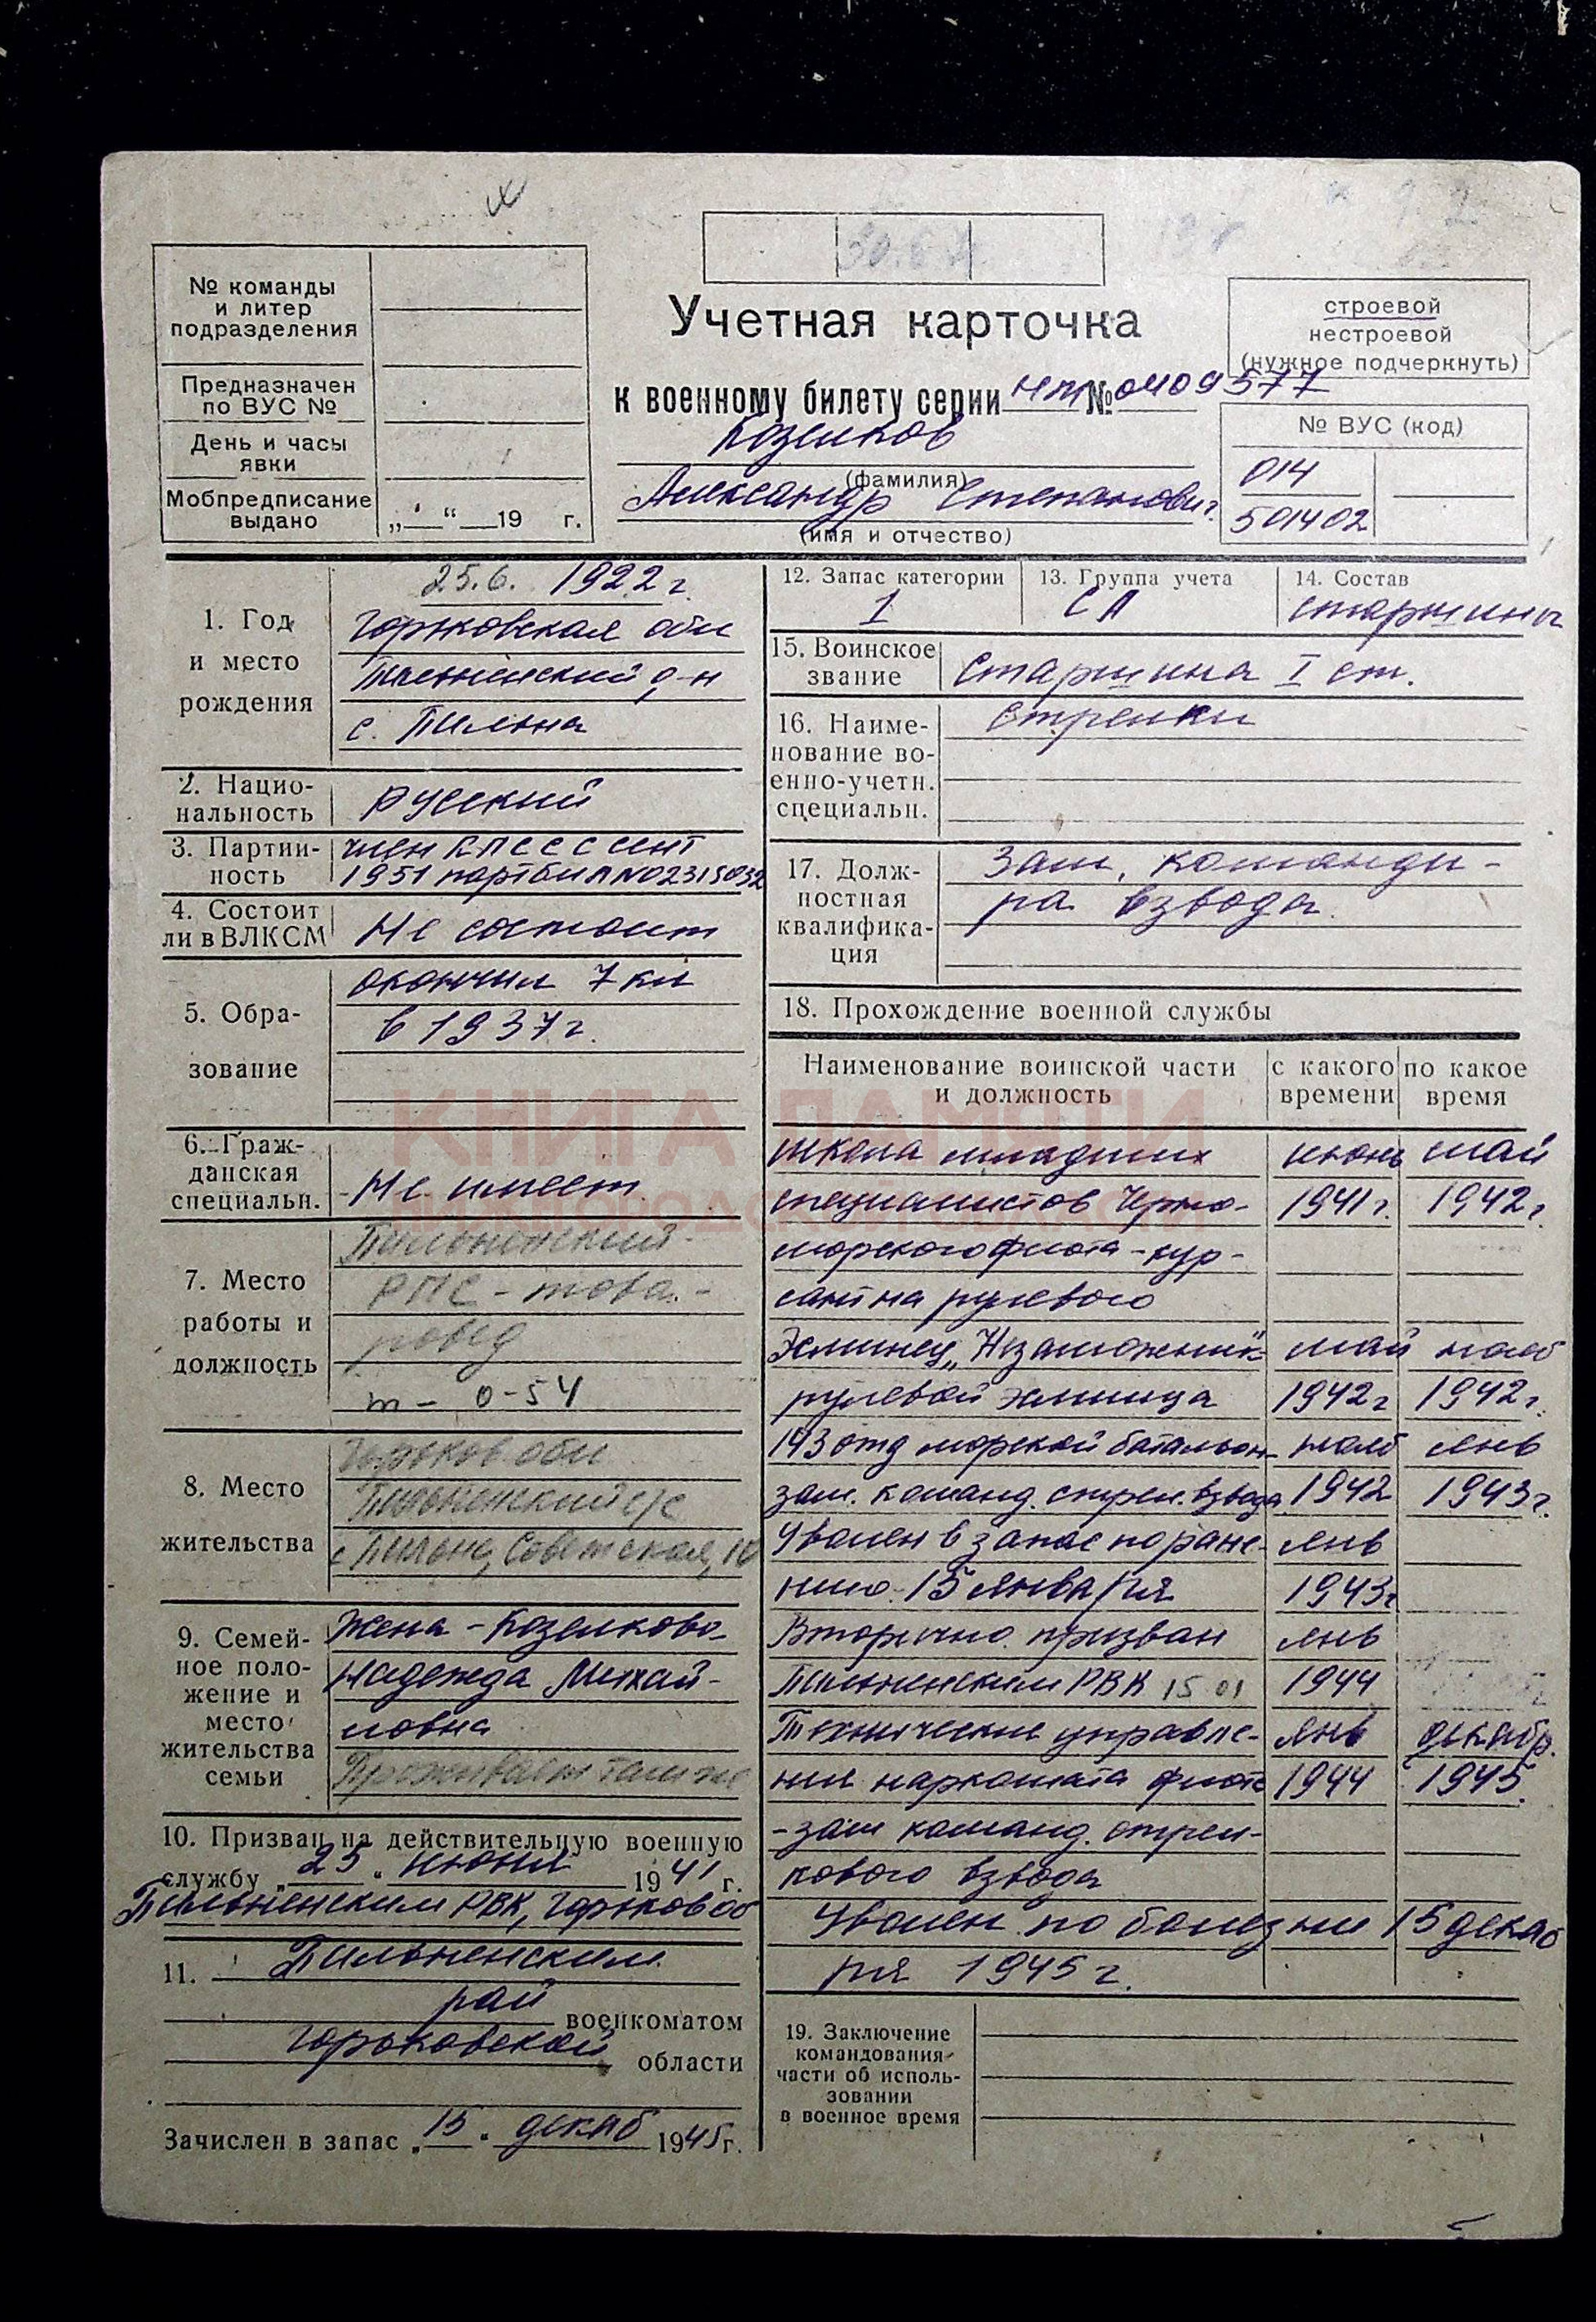 № команды
и литер
подразделения
Предназначен
по ВУС №
День и часы
явки
Мобпредписание
выдано „ “ 19 г.
Учетная карточка
к военному билету серии НТ № 0409577
Козелков
(фамилия)
Александр Степанович
(имя и отчество)
строевой
нестроевой
(нужное подчеркнуть)
№ ВУС (код)
014
501402
1. Год
и место
рождения
25.6. 1922 г.
Горьковская обл
Пильненский р-н
с. Пильна
2. Нацио-
нальность
русский
3. Партий-
ность
член КПСС с сент
1951 партбил N02315032
4. Состоит
ли в ВЛКСМ
Не состоит
5. Обра-
зование
окончил 7 кл
в 1937 г.
6. Граж-
данская
специальн.
Не имеет
7. Место
работы и
должность
Пильненский
РПС - това.-
ровед
т - 0-54
8. Место
жительства
Горьков обл
Пильненский
с Пильна, Советская,
9. Семей-
ное поло-
жение и
место
жительства
семьи
Жена - Козелкова
Надежда Михай-
ловна
Проживает там же
10. Призван на действительную военную
службу „ 25 “ июня 1941 г.
Пильненским РВК, Горьков об
11. Пильненским
рай
военкоматом
Горьковской области
Зачислен в запас „ 15 “ декаб 1945 г.
12. Запас категории
1
13. Группа учета
СА
14. Состав
старшины
15. Воинское
звание
Старшина I ст.
16. Наиме-
нование во-
енно-учетн.
специальн.
Стрелки
17. Долж-
ностная
квалифика-
ция
Зам. команди-
ра взвода
18. Прохождение военной службы
Наименование воинской части
и должность
с какого
времени
по какое
время
Школа младших июнь май
специалистов Черно- 1941 г. 1942 г.
морского флота - кур-
сант на рулевого
Эсминец „Незаможник" май нояб
рулевой эсминца 1942 г 1942 г.
143 отд морской батальон нояб янв
зам. команд. стрел. взвода 1942 1943 г.
Уволен в запас по ране- янв
нию 15 января 1943 г
Вторично призван янв
Пильненским РВК 15 01 1944
Технические управле- янв декабр.
ния наркомата флота 1944 1945.
- зам команд. стрел-
кового взвода
Уволен по болезни 15 декаб
ря 1945 г.
19. Заключение
командования
части об исполь-
зовании
в военное время
КНИГА ПАМЯТИ